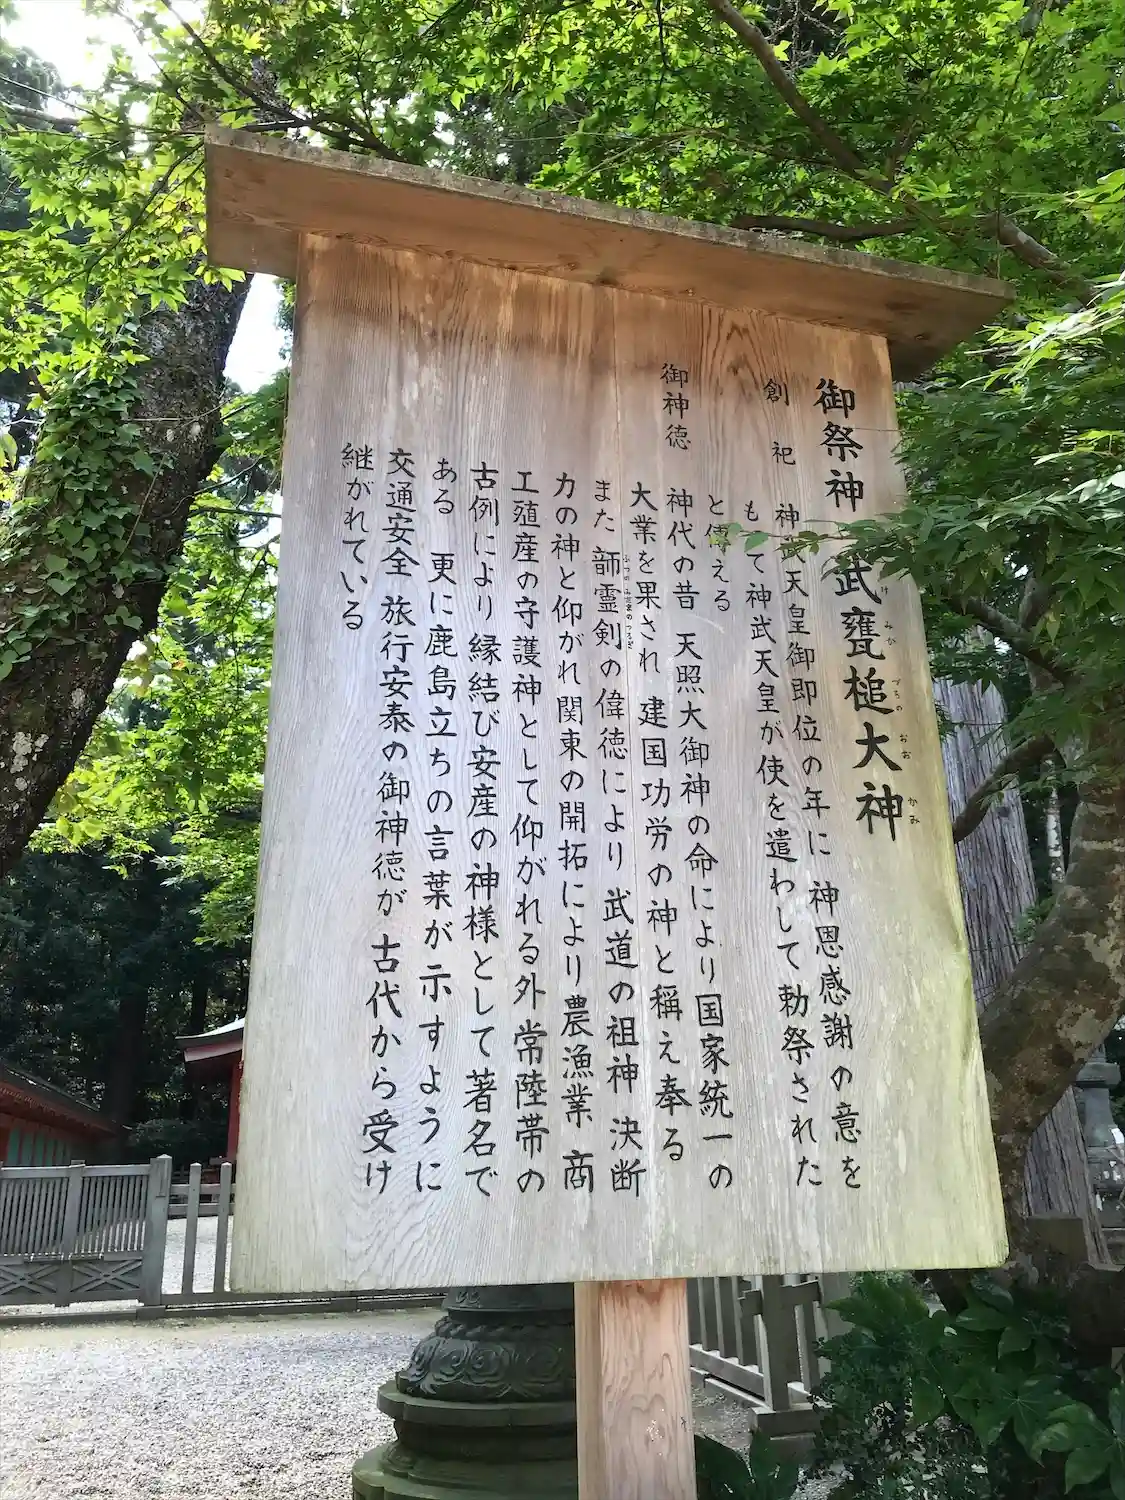 御祭神 武甕槌大神
け みか づちの おお かみ
創祀 神武天皇御即位の年に 神恩感謝の意を
もって神武天皇が使を遣わして勅祭された
と傳える
御神徳 神代の昔 天照大御神の命により国家統一の
大業を果され 建国功労の神と稱え奉る
また 韴霊剣の偉徳により 武道の祖神 決断
力の神と仰がれ関東の開拓により農漁業 商
工殖産の守護神として仰がれる外 常陸帯の
古例により 縁結び安産の神様として著名で
ある 更に鹿島立ちの言葉が示すように
交通安全 旅行安泰の御神徳が 古代から受け
継がれている